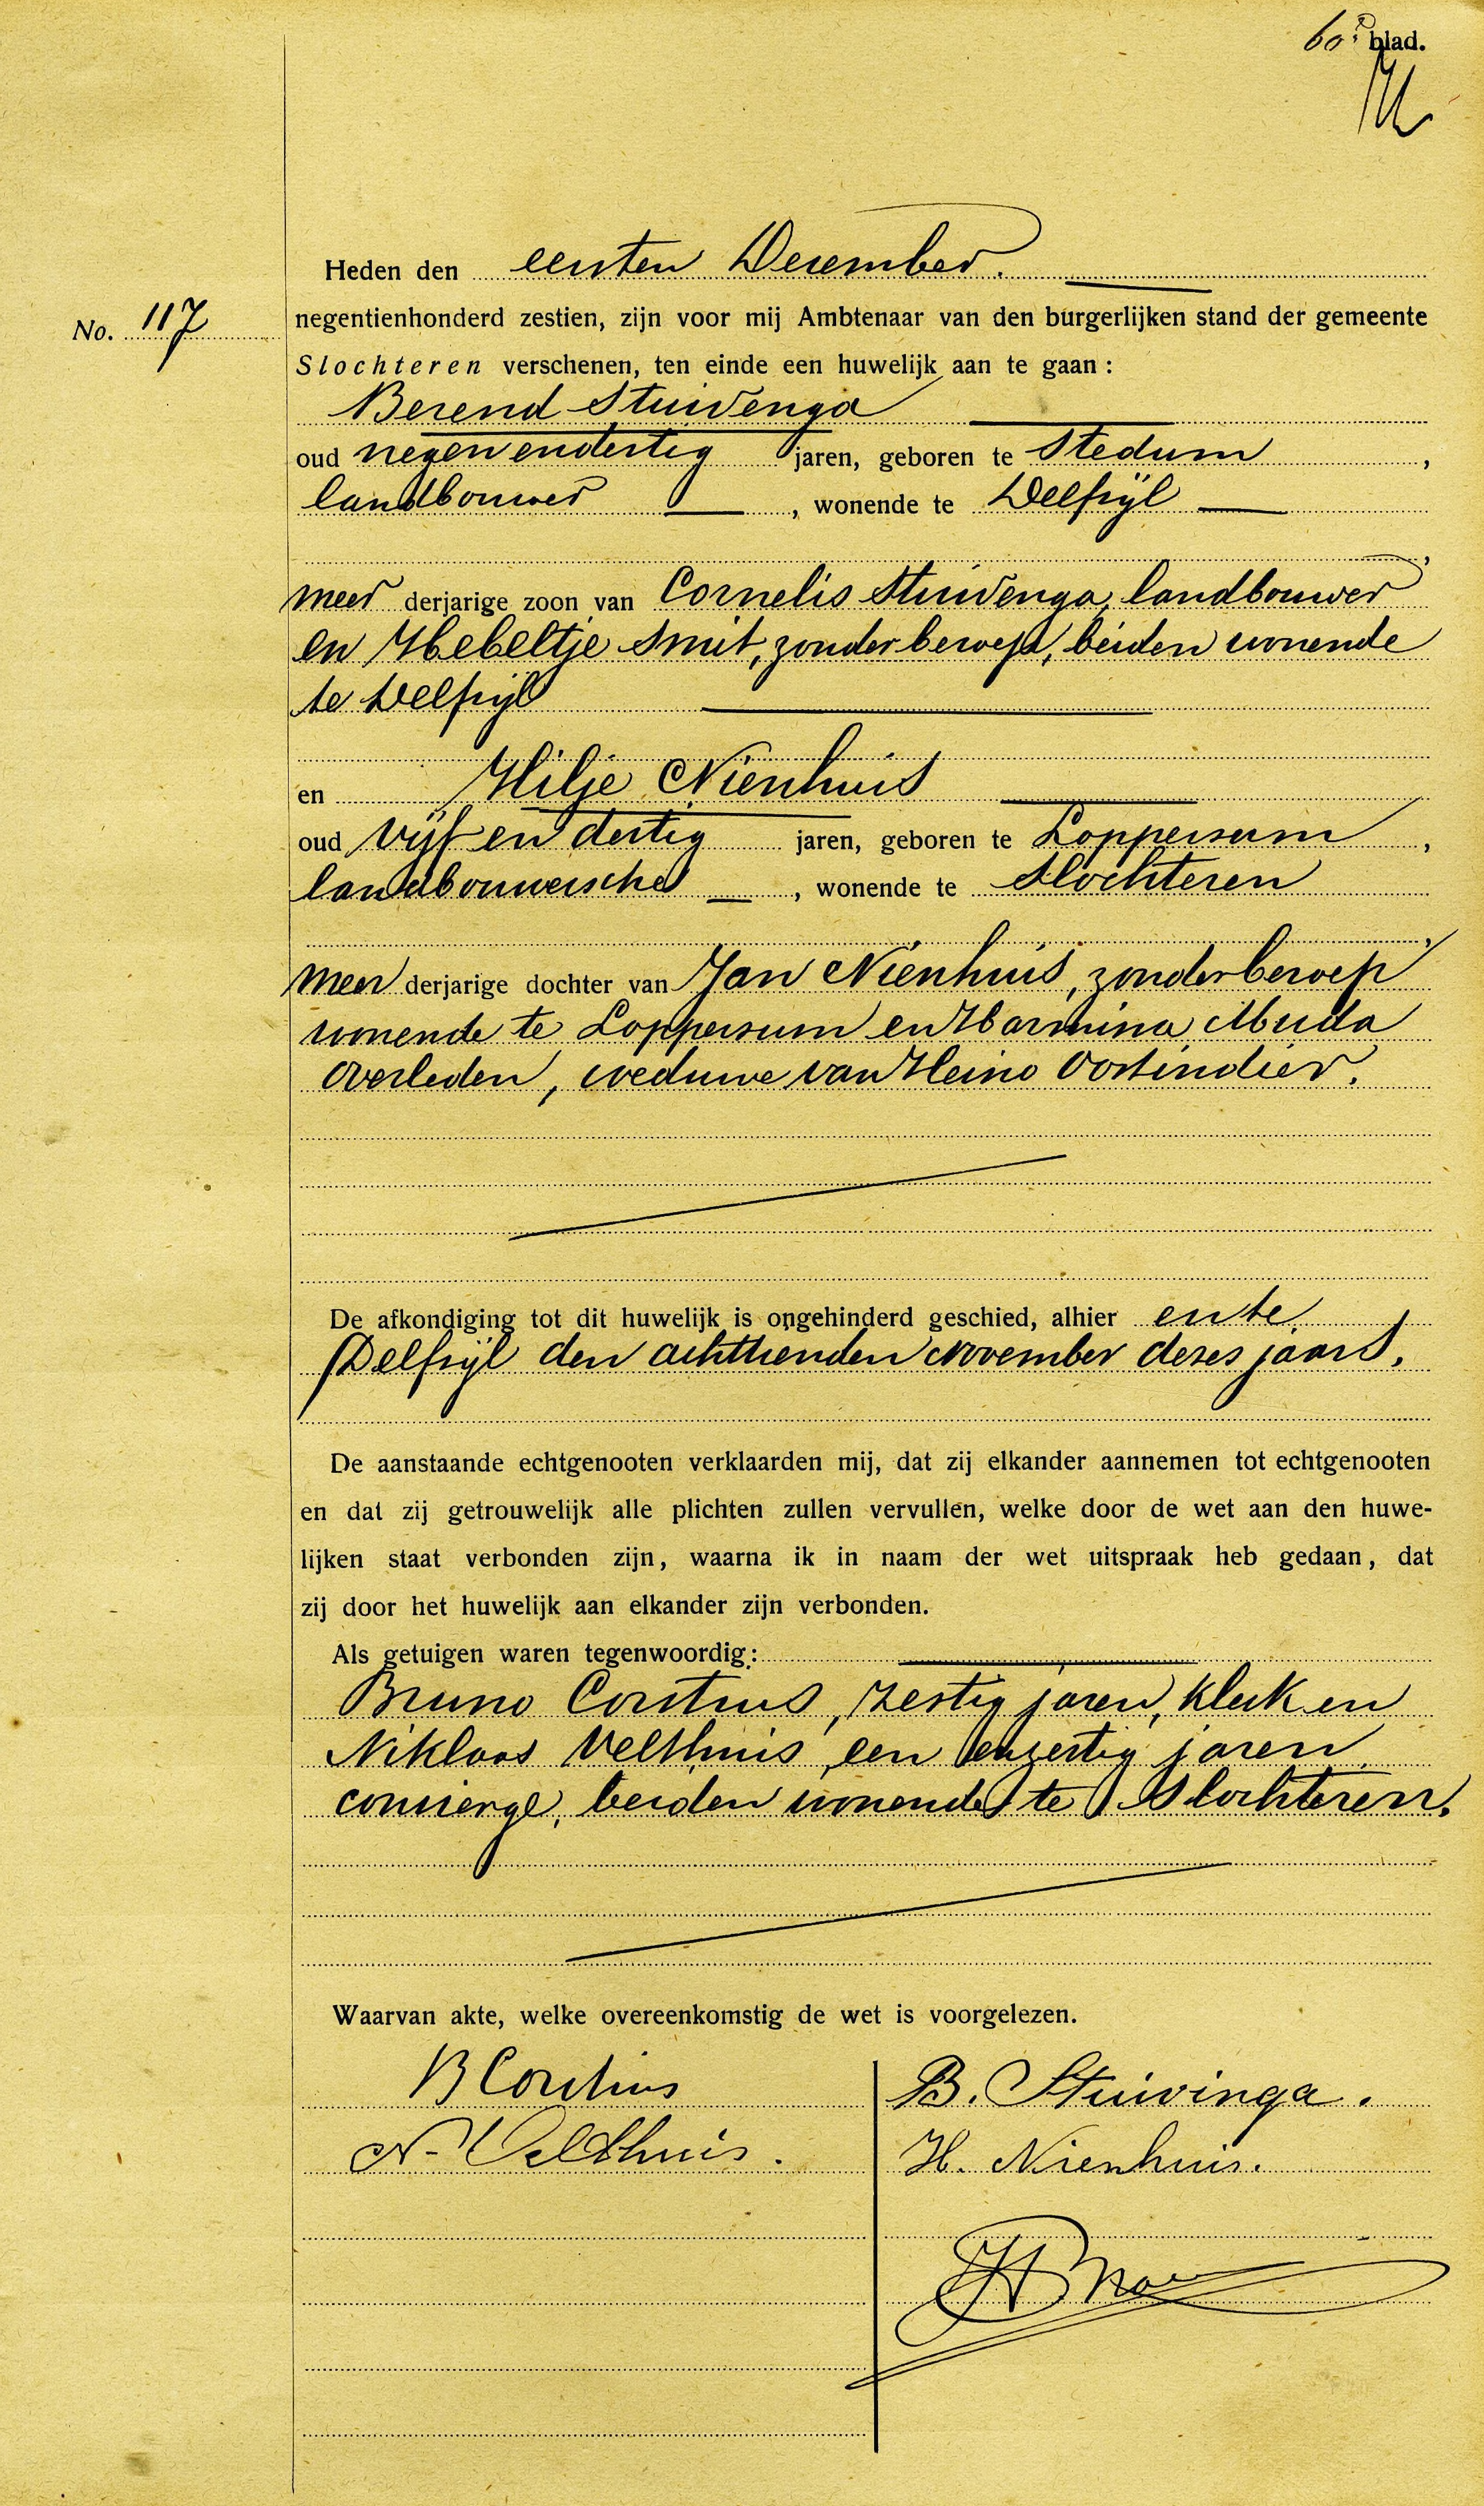 60e blad.
Heden den eersten December.
negentienhonderd zestien, zijn voor mij Ambtenaar van den burgerlijken stand der gemeente
No. 117
Slochteren verschenen, ten einde een huwelijk aan te gaan:
Berend Stuivenga
oud negenendertig jaren, geboren te Stedum,
landbouwer, wonende te Delfzijl
,
meer derjarige zoon van Cornelis Stuivenga, landbouwer
en Hebeltje Smit, zonder beroep, beiden wonende
te Delfzijl
en Hilje Nienhuis
oud vijf en dertig jaren, geboren te Loppersum,
landbouwersche, wonende te Slochteren
,
meer derjarige dochter van Jan Nienhuis, zonder beroep
wonende te Loppersum en Harmina Muda
overleden, weduwe van Heino Oostindiër.
De afkondiging tot dit huwelijk is ongehinderd geschied, alhier en te
Delfzijl den achttienden November dezes jaars.
De aanstaande echtgenooten verklaarden mij, dat zij elkander aannemen tot echtgenooten
en dat zij getrouwelijk alle plichten zullen vervullen, welke door de wet aan den huwe-
lijken staat verbonden zijn, waarna ik in naam der wet uitspraak heb gedaan, dat
zij door het huwelijk aan elkander zijn verbonden.
Als getuigen waren tegenwoordig:
Bruno Corstius, zestig jaren, klerk en
Niklaas Velthuis, een en zestig jaren
concierge, beiden wonende te Slochteren.
Waarvan akte, welke overeenkomstig de wet is voorgelezen.
B Corstius
B. Stuivinga.
N. Velthuis.
H. Nienhuis.